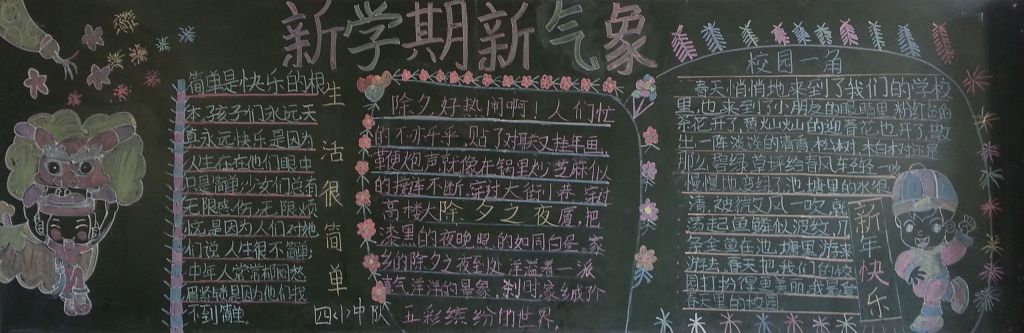 新学期新气象
简单是快乐的根
本,孩子们永远天
真永远快乐是因为
人生在在他们眼中
只是简单,少女们总有
无限感伤,无限烦
忧,是因为人们对她
们说,人生很不简单,
中年人常常都闷愁
眉紧锁是因为他们找
不到简单.
生活很简单
四(2)中队
除夕好热闹啊!人们忙
的不亦乐乎,贴了对联又挂年画,
鞭炮声就像在锅里炒芝麻似
的接连不断,穿过大街小巷,穿过
高楼大厦,把
除夕之夜
漆黑的夜晚照的如同白昼,家
乡的除夕之夜到处洋溢着一派
喜气洋洋的景象,刹时家乡成了
五彩缤纷的世界.
校园一角
春天悄悄地来到了我们的学校
里,也来到了小朋友的眼睛里,粉红色的
茶花开了,黄灿灿的迎春花也开了,散
发一阵淡淡的清香,松树
那么碧绿,草
慢慢地变绿了,池塘里的水很
清,被微风一吹,
荡起鱼鳞似波纹,几
条金鱼在池塘里游来
游去,春天把我们的校
园打扮得更美丽,我
春天里的校园
新年快乐